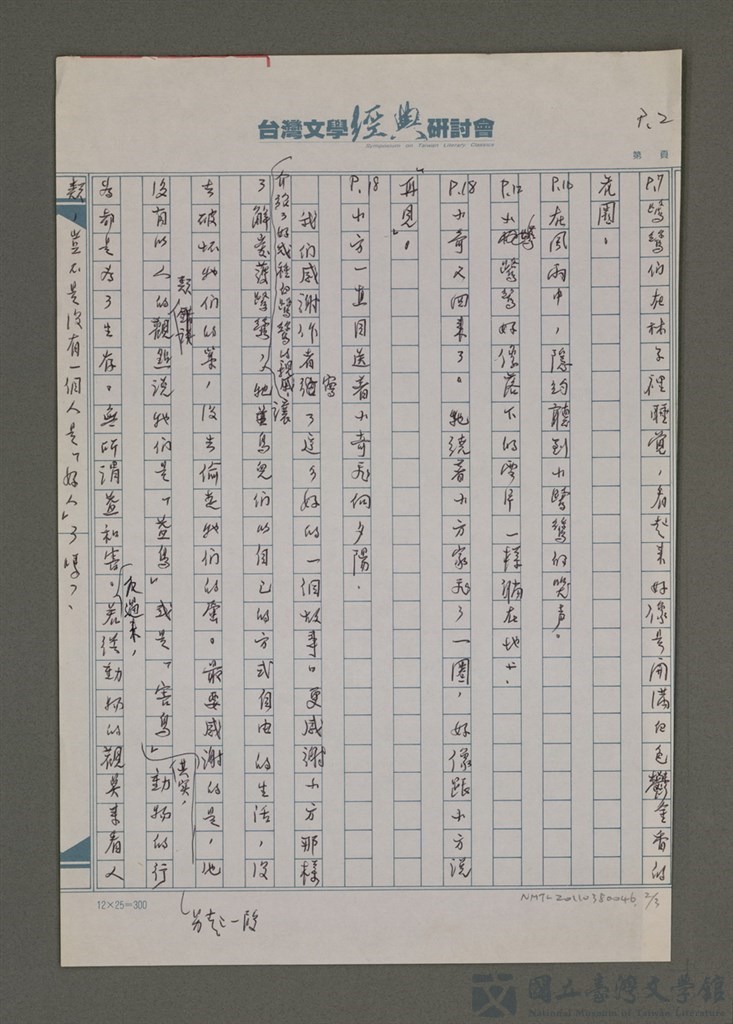 P.2
台灣文學經典研討會
Symposium on Taiwan Literary Classics
第 頁
P.7 鷺鷥們在林子裡睡覺，看起來好像是開滿白色鬱金香的
花園。
P.16 在風雨中，隱約聽到小鷺鷥的哭声。
P.12 小鷺鷥好像落下的雪片一樣躺在地上。
P.18 小奇又回來了。牠繞著小方家飛了一圈，好像跟小方說
「再見」。
P.18 小方一直目送着小奇飛向夕陽。
我们感谢作者寫了這多好的一個故事。更感谢小方那樣
介紹了的鷺鷥的親感，讓
了解愛護鷺鷥，以牠鳥兒们的自己的方式自由的生活，沒
去破坏牠们的巢，沒去偷走牠们的蛋。最要感谢的是，他
沒有以人的錯誤觀點說牠们是「益鳥」或是「害鳥」
其实，動物的行
為都是為了生存。無所谓益和害。反過來，若從動物的觀点來看人
類，豈不是沒有一個人是「好人」了嗎？
另起一段
12×25=300
NMTL20110380046 2/3
國立臺灣文學館
National Museum of Taiwan Literature